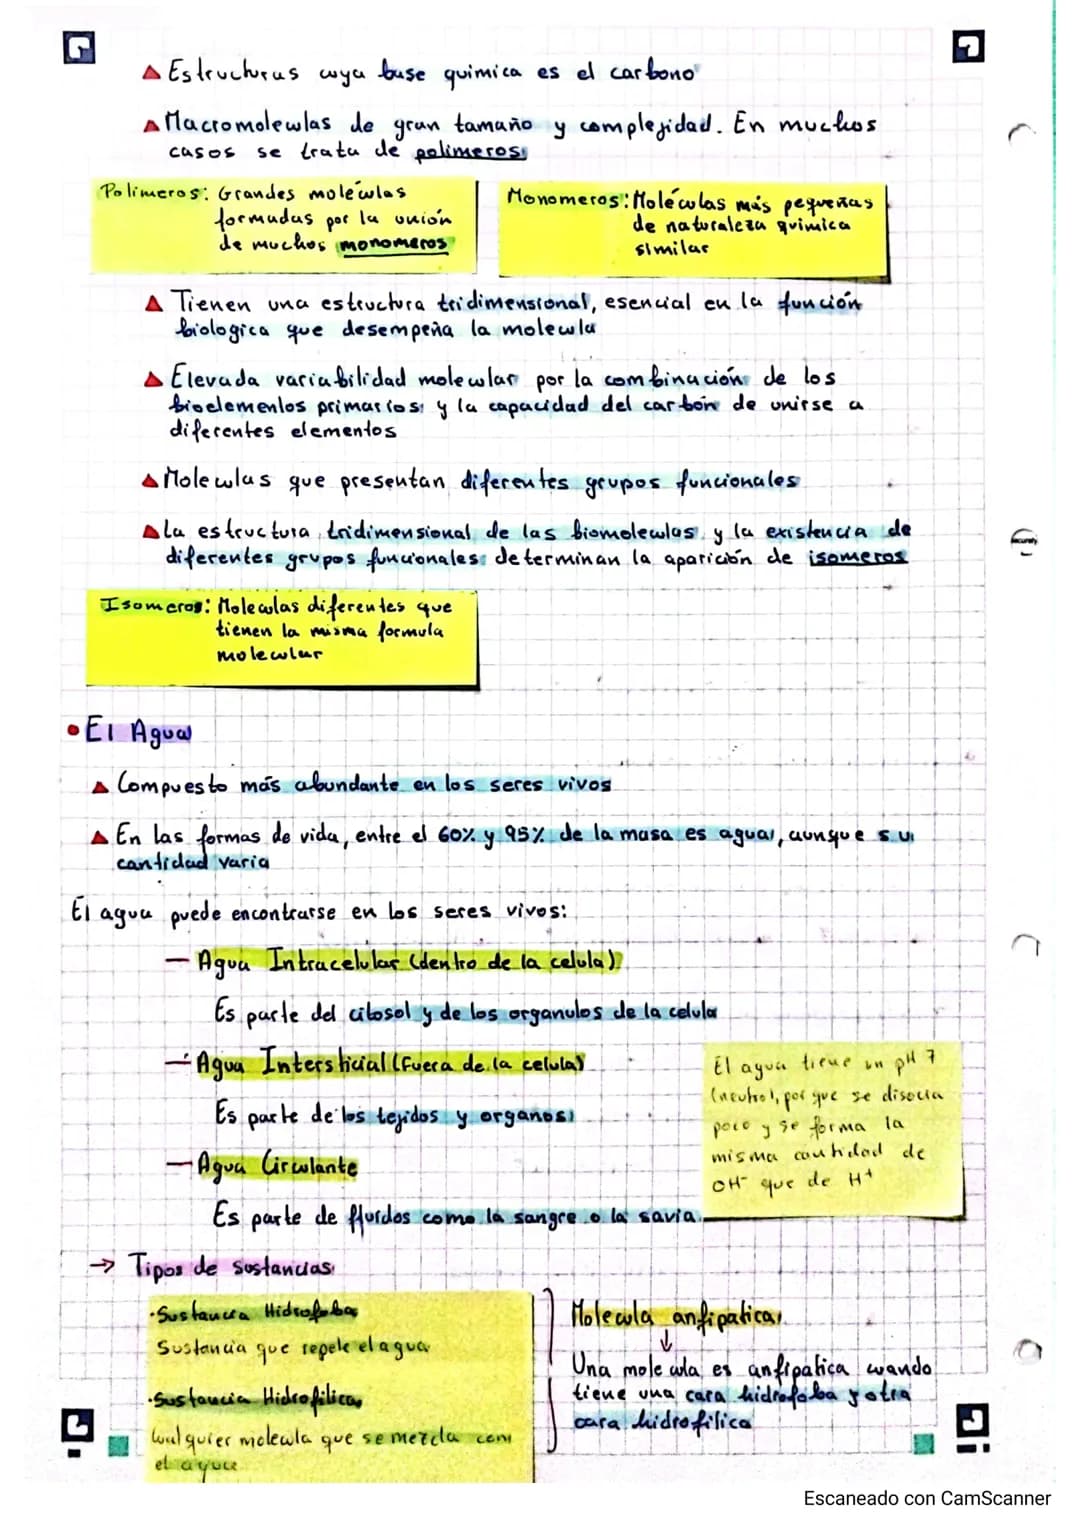 Estructuras cuya base quimica es el carbono
Macromoleculas de gran tamaño y complejidad. En muchos
casos se trata de polimeros
Polimeros: Grandes moléculas
formadas por la unión
de muchos monomeros
Monomeros: Moléculas más pequeñas
de naturaleza quimica
similar
Tienen una estructura tridimensional, esencial en la función
biologica que desempeña la molecula
Elevada variabilidad molecular por la combinación de los
bioelementos primarios y la capacidad del carbón de unirse a
diferentes elementos
Moleculas que presentan diferentes grupos funcionales
La estructura tridimensional de las biomoleculas y la existencia de
diferentes grupos funcionales determinan la aparición de isomeros
Isomeros: Moleculas diferentes que
tienen la misma formula
molecular
• El Agua
Compuesto más abundante en los seres vivos
En las formas de vida, entre el 60% y 95% de la masa es agua, aunque su
cantidad varia
El agua puede encontrarse en los seres vivos:
— Agua Intracelular (dentro de la celula)
Es parte del citosol y de los organulos de la celula
— Agua Intersticial (Fuera de la celula)
Es parte de los tejidos y organos
El agua tiene un pH 7
(neutro), por que se disocia
poco y se forma la
misma cantidad de
OH⁻ que de H⁺
— Agua Circulante
Es parte de fluidos como la sangre o la savia
→ Tipos de sustancias
·Sustancia Hidrofoba
Sustancia que repele el agua
·Sustancia Hidrofilica
Cualquier molecula que se mezcla con
el agua
Molecula anfipatica
↓
Una molecula es anfipatica cuando
tiene una cara hidrofoba y otra
cara hidrofilica
Escaneado con CamScanner